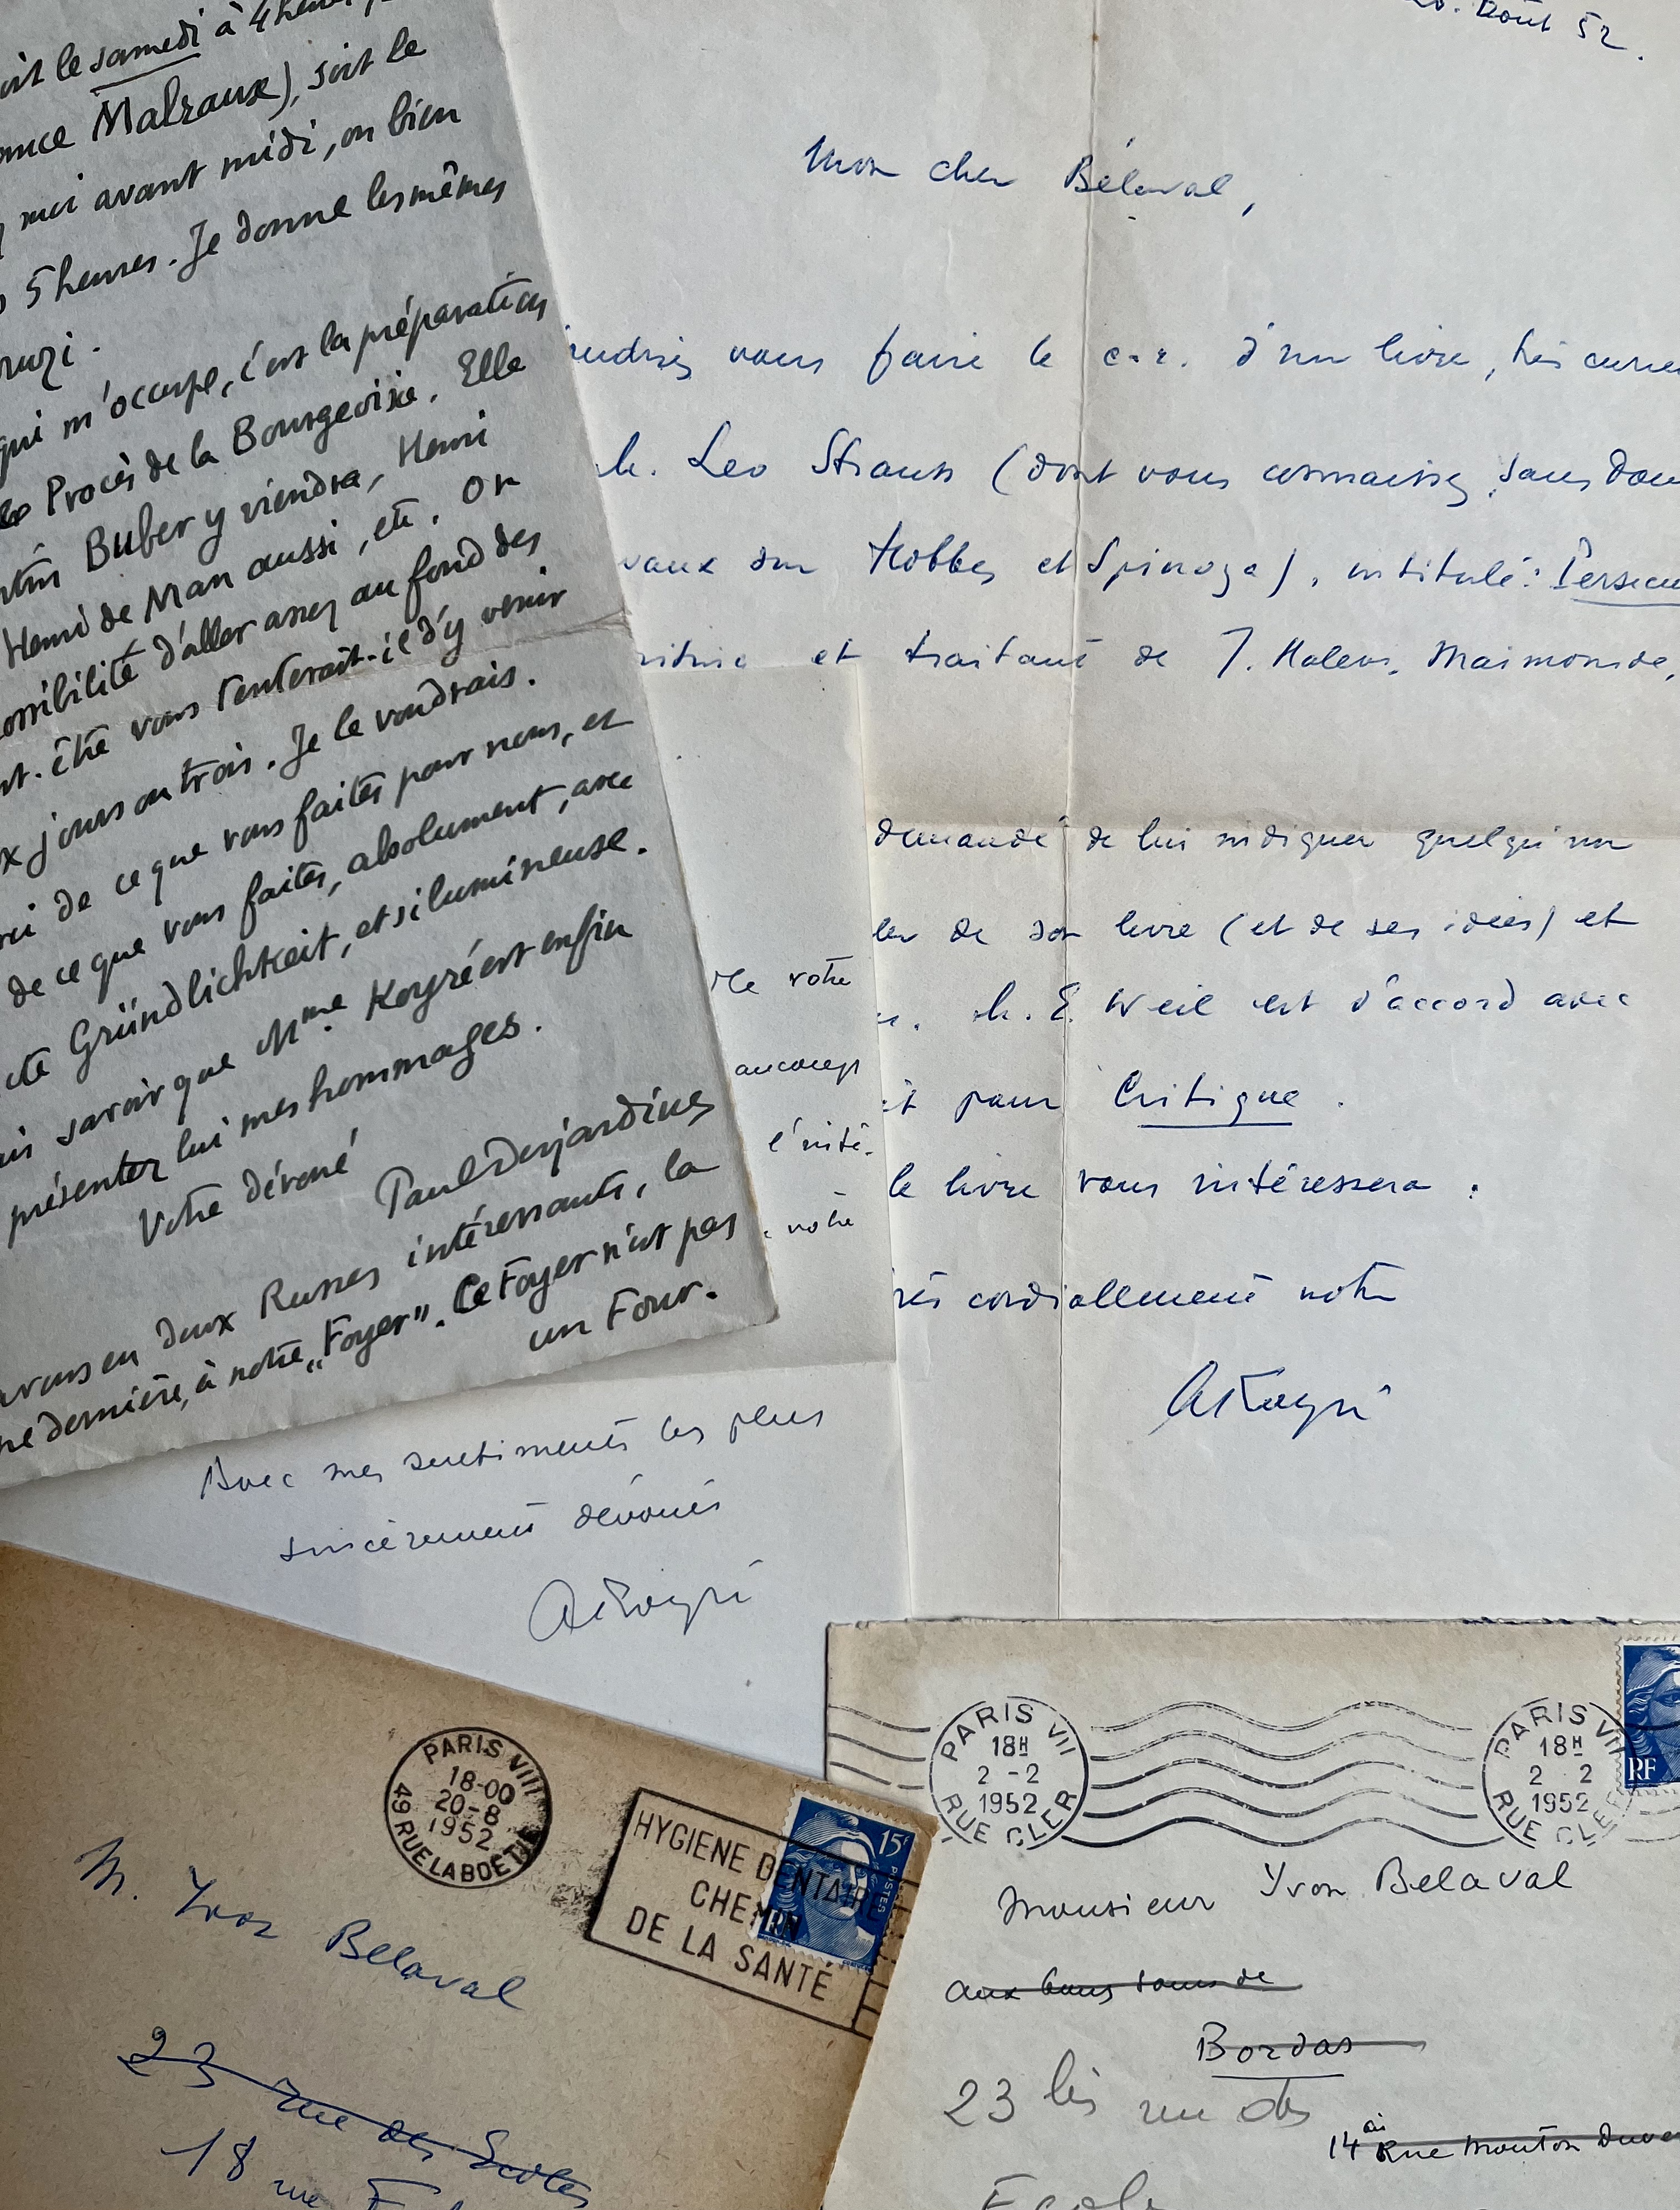 le samedi à 4 heures
Malraux), soit le
moi avant midi, ou bien
5 heures. Je donne les mêmes
qui m'occupe, c'est la préparation
Procès de la Bourgeoisie. Elle
Buber y viendra, Henri
Henri de Man aussi, etc. On
d'aller assez au fond des
vous tenterait-il d'y venir
jours ou trois. Je le voudrais.
de ce que vous faites pour nous, et
de ce que vous faites, absolument, avec
Gründlichkeit, et si lumineuse.
savoir que Mme Koyré est enfin
présenter lui mes hommages.
Votre dévoué
Paul Desjardins
deux Russes intéressants, la
dernière, à notre „Foyer”. Ce Foyer n'est pas
un Four.
Août 52.
Mon cher Bélaval,
vous faire le c.r. d'un livre, très
M. Leo Strauss (dont vous connaissez, sans
sur Hobbes et Spinoza), intitulé:
et traitant de J. Halevi, Maimonide,
demandé de lui indiquer quelqu'un
de son livre (et de ses idées) et
M. E. Weil est d'accord avec
pour Critique.
le livre vous intéressera.
cordialement votre
AKoyré
votre
votre
Avec mes sentiments les plus
sincèrement dévoués
AKoyré
PARIS VIII
18-00
20-8
1952
49 RUE LA BOETIE
HYGIENE DENTAIRE
CHEMIN
DE LA SANTÉ
15F
POSTES
RF
M. Yvon Belaval
23 rue des Ecoles
18 rue
PARIS VII
18H
2-2
1952
RUE CLER
PARIS VII
18H
2 2
1952
RUE CLER
RF
Monsieur Yvon Belaval
aux bons soins de
Bordas
23 bis rue des
14 Rue Mouton